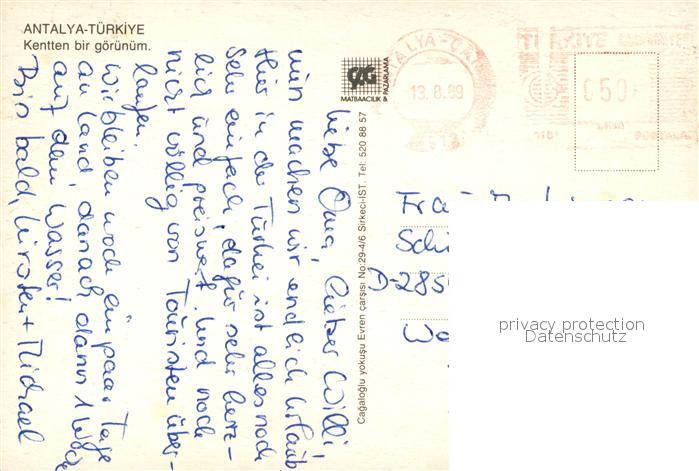 ANTALYA-TÜRKİYE
Kentten bir görünüm.
Liebe Oma, lieber Willi,
nun machen wir endlich Urlaub.
Hier in der Türkei ist alles noch
sehr einfach, dafür sehr herz-
lich und preiswert. Und noch
nicht völlig von Touristen über-
laufen.
Wir bleiben noch ein paar Tage
an Land, danach dann 1 Woche
auf dem Wasser!
Bis bald, Kirsten + Michael
ÇAĞ
MATBAACILIK & PAZARLAMA
Cağaloğlu yokuşu Evren çarşısı No:29-4/6 Sirkeci-İST. Tel: 520 88 57
ANTALYA-ÇA
13.8.89
TÜRKİYE
050
POSTALAR
Frau
Sch
D-285
privacy protection
Datenschutz